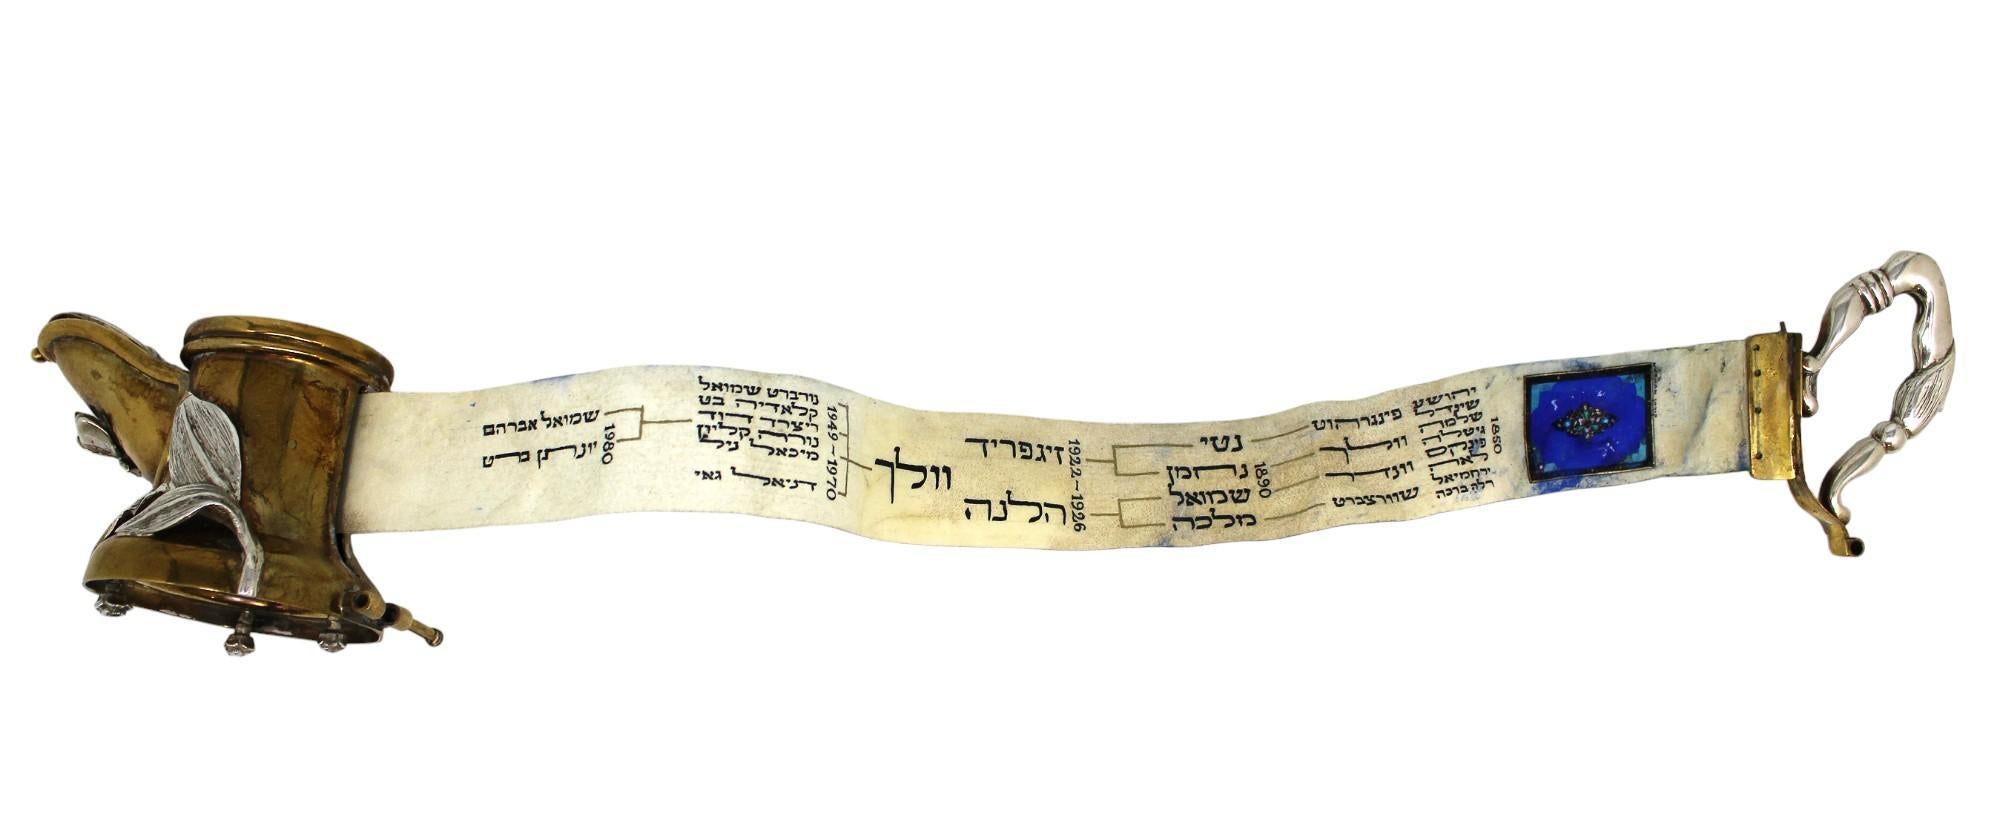 1850
יהושע
שינדל
שלמה
גיטלה
פינקס
לאה
ירחמיאל
רלה ברכה
פינגרהוט
וולך
וונדר
שוורצברט
1890
נטי
נחמן
שמואל
מלכה
1922-1926
זיגפריד
הלנה
וולך
1949-1970
נורברט שמואל
קלאדיה בט
ריצרד דוד
נוריה קליין
מיכאל ניל
דניאל גאי
1980
שמואל אברהם
יונתן ברט